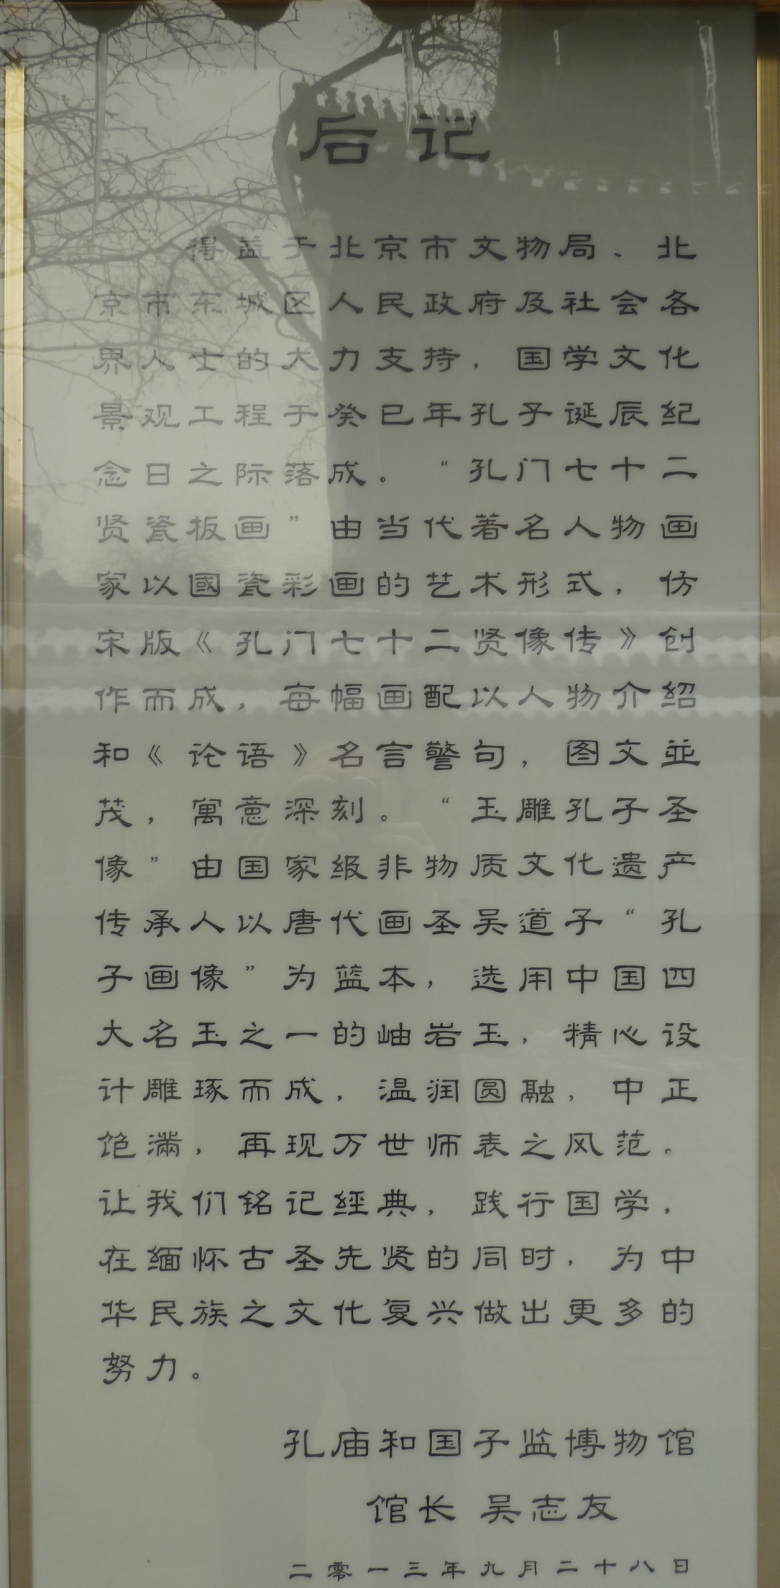 后记
得益于北京市文物局、北
京市东城区人民政府及社会各
界人士的大力支持，国学文化
景观工程于癸巳年孔子诞辰纪
念日之际落成。“孔门七十二
贤瓷板画”由当代著名人物画
家以國瓷彩画的艺术形式，仿
宋版《孔门七十二贤像传》创
作而成，每幅画配以人物介绍
和《论语》名言警句，图文並
茂，寓意深刻。“玉雕孔子圣
像”由国家级非物质文化遗产
传承人以唐代画圣吴道子“孔
子画像”为蓝本，选用中国四
大名玉之一的岫岩玉，精心设
计雕琢而成，温润圆融，中正
饱满，再现万世师表之风范。
让我们铭记經典，践行国学，
在缅怀古圣先贤的同时，为中
华民族之文化复兴做出更多的
努力。
孔庙和国子监博物馆
馆长 吴志友
二零一三年九月二十八日